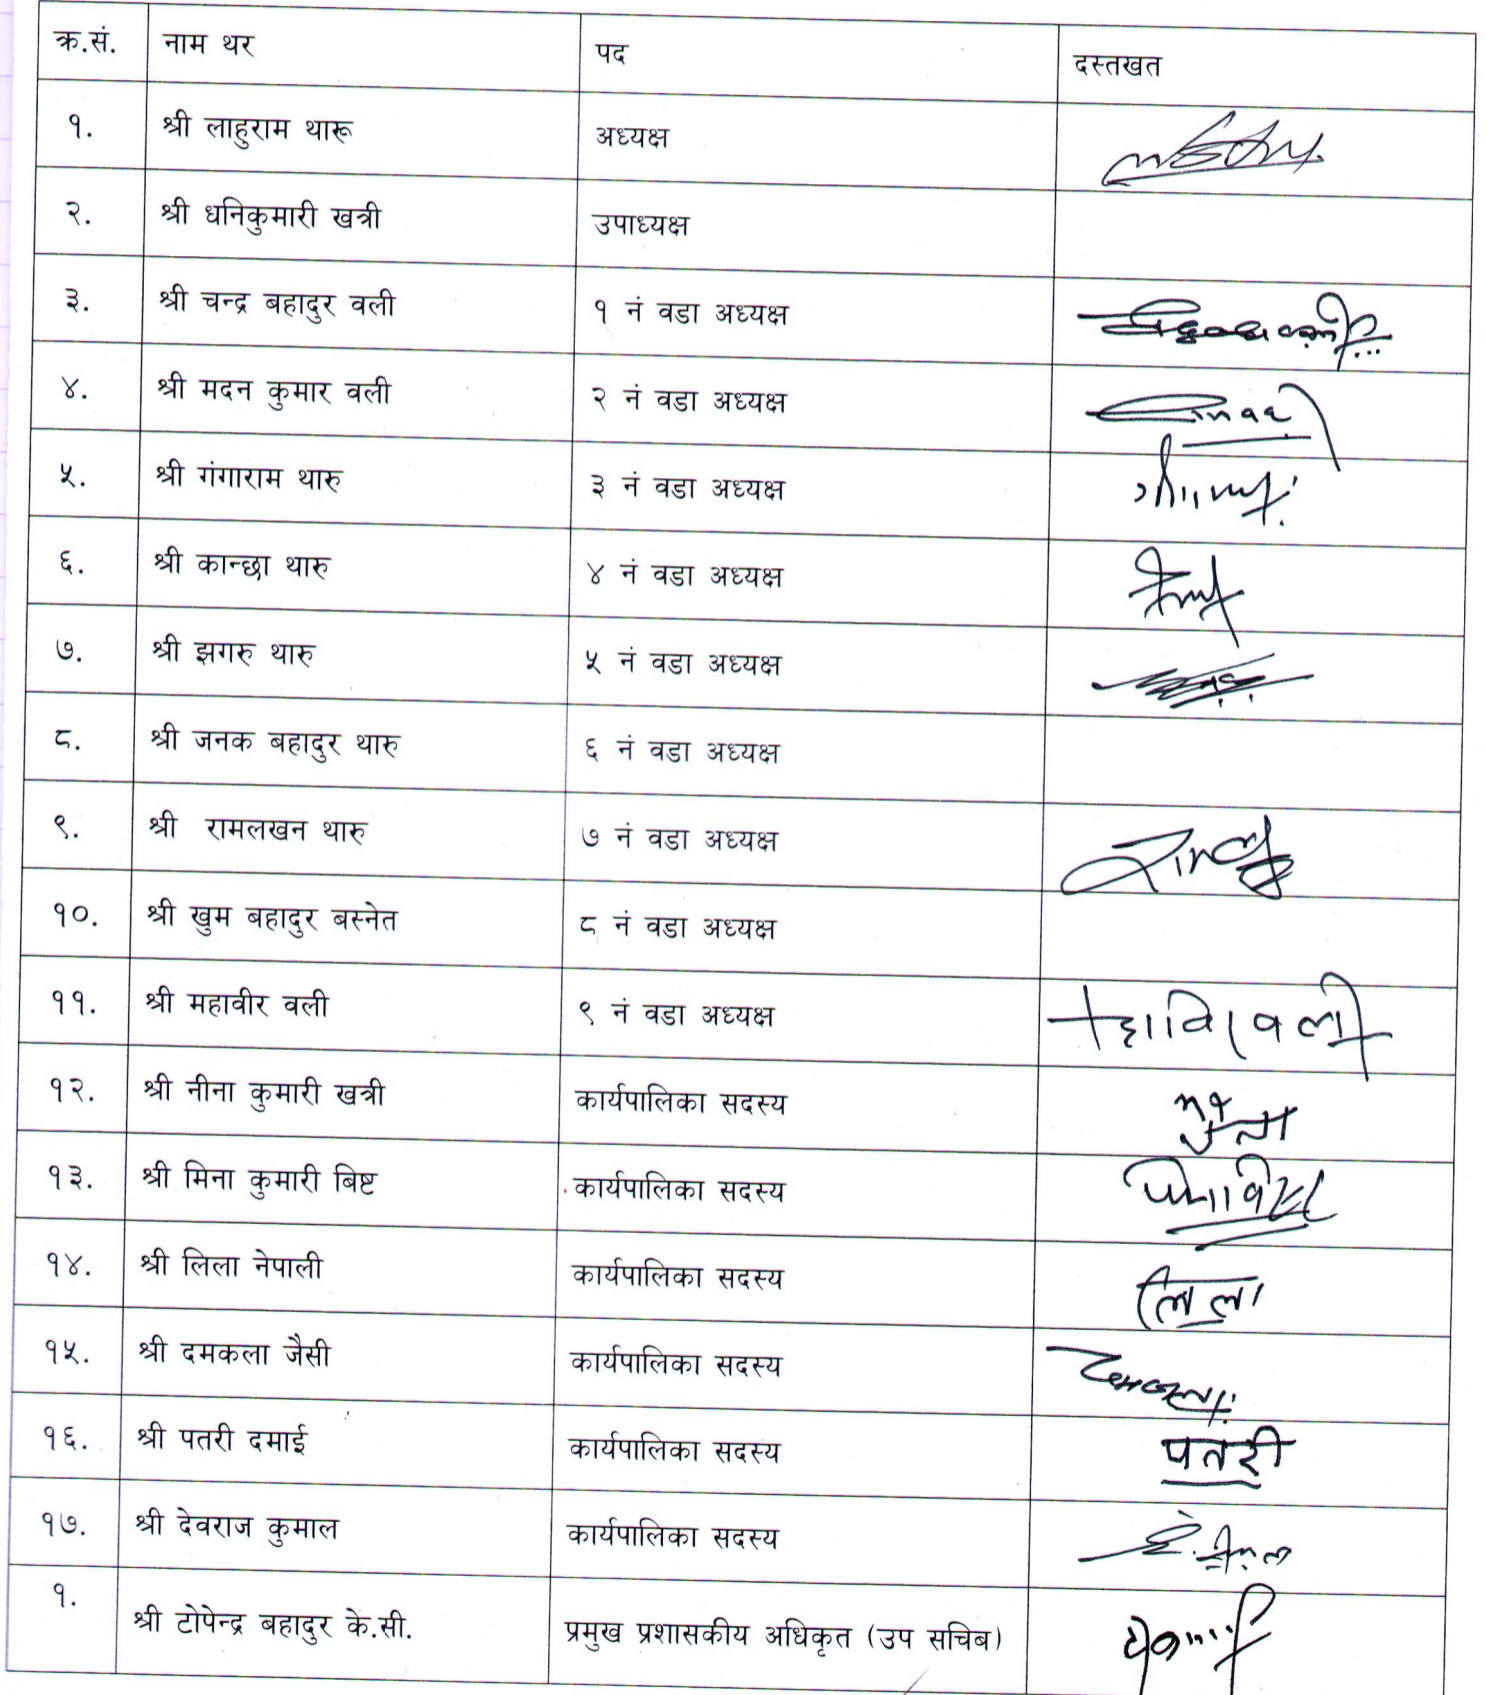 क्र.सं. नाम थर पद दस्तखत
१. श्री लाहुराम थारू अध्यक्ष
२. श्री धनिकुमारी खत्री उपाध्यक्ष
३. श्री चन्द्र बहादुर वली १ नं वडा अध्यक्ष
४. श्री मदन कुमार वली २ नं वडा अध्यक्ष
५. श्री गंगाराम थारु ३ नं वडा अध्यक्ष
६. श्री कान्छा थारु ४ नं वडा अध्यक्ष
७. श्री झगरु थारु ५ नं वडा अध्यक्ष
८. श्री जनक बहादुर थारु ६ नं वडा अध्यक्ष
९. श्री रामलखन थारु ७ नं वडा अध्यक्ष
१०. श्री खुम बहादुर बस्नेत ८ नं वडा अध्यक्ष
११. श्री महावीर वली ९ नं वडा अध्यक्ष
१२. श्री नीना कुमारी खत्री कार्यपालिका सदस्य
१३. श्री मिना कुमारी बिष्ट कार्यपालिका सदस्य
१४. श्री लिला नेपाली कार्यपालिका सदस्य लिला
१५. श्री दमकला जैसी कार्यपालिका सदस्य
१६. श्री पतरी दमाई कार्यपालिका सदस्य पतरी
१७. श्री देवराज कुमाल कार्यपालिका सदस्य
१. श्री टोपेन्द्र बहादुर के.सी. प्रमुख प्रशासकीय अधिकृत (उप सचिब)